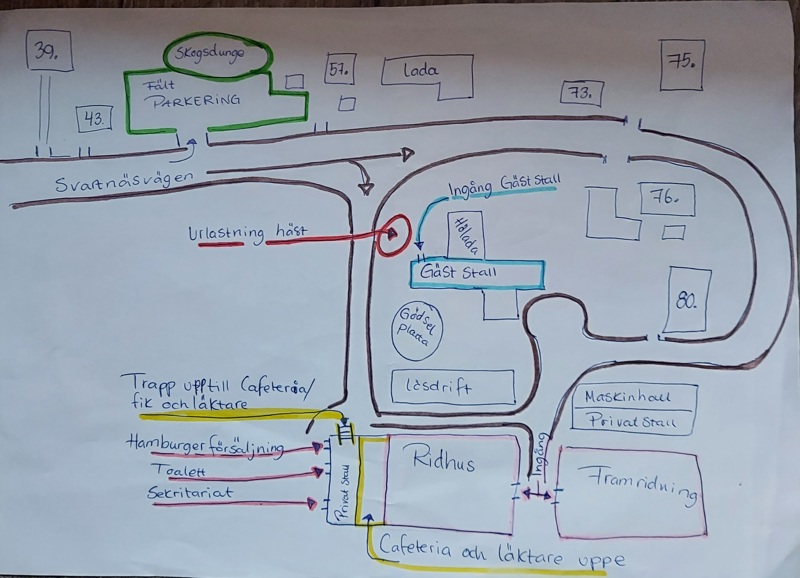 39.
Skogsdunge
57.
Lada
75.
Fält
PARKERING
43.
73.
Svartnäsvägen
Ingång Gäststall
76.
Urlastning häst
Hölada
Gäst Stall
80.
Gödsel
platta
Lösdrift
Trapp upp till Cafeteria/
fik och läktare
Maskinhall
Privat Stall
Hamburger försäljning
Toalett
Sekritariat
Privat Stall
Ridhus
Ingång
Framridning
Cafeteria och läktare uppe